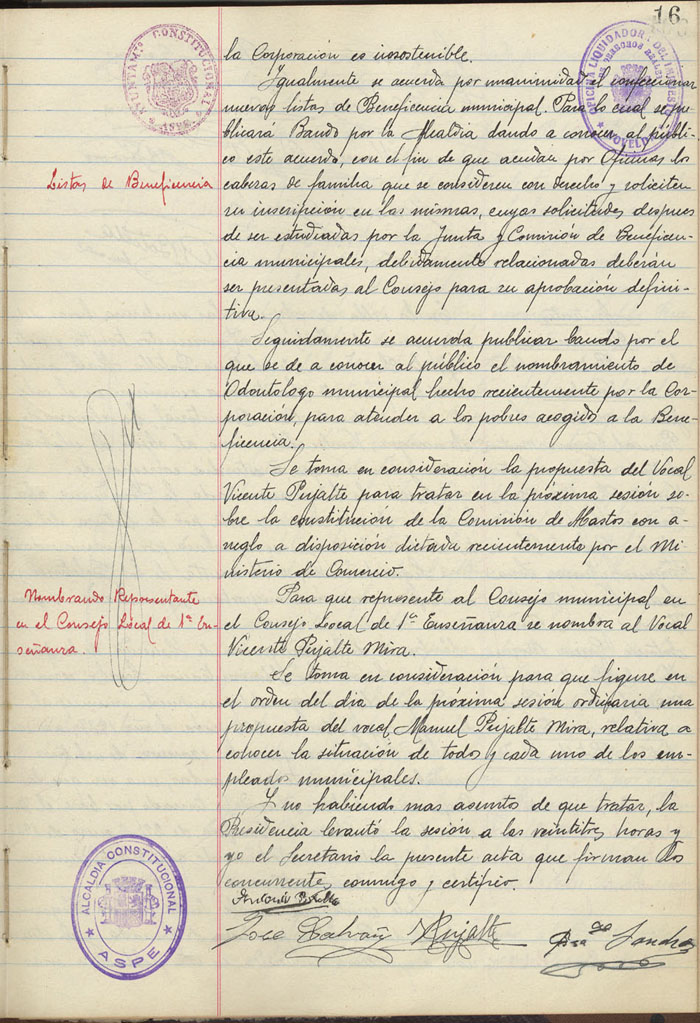 16
AYUNTAMTº CONSTITUCIONAL
ASPE
OFICINA LIQUIDADORA DEL
NOVELDA
la Corporación es insostenible.
Igualmente se acuerda por unanimidad el confeccionar
nuevas listas de Beneficencia municipal. Para lo cual se pu-
blicará Bando por la Alcaldia dando a conocer al públi-
co este acuerdo, con el fin de que acudan por Oficinas los
Listas de Beneficencia
cabezas de familia que se consideren con derecho y soliciten
su inscripción en las mismas, cuyas solicitudes despues
de ser estudiadas por la Junta y Comisión de Beneficen-
cia municipales, debidamente relacionadas deberán
ser presentadas al Consejo para su aprobación defini-
tiva.
Seguidamente se acuerda publicar bando por el
que se de a conocer al público el nombramiento de
Odontólogo municipal hecho recientemente por la Cor-
poración, para atender a los pobres acogidos a la Bene-
ficencia.
Se toma en consideración la propuesta del Vocal
Vicente Pujalte para tratar en la próxima sesión so-
bre la constitución de la Comisión de Abastos con a-
rreglo a disposición dictada recientemente por el Mi-
nisterio de Comercio.
Nombrando Representante
en el Consejo Local de 1ª En-
señanza.
Para que represente al Consejo municipal en
el Consejo Local de 1ª Enseñanza se nombra al Vocal
Vicente Pujalte Mira.
Se toma en consideración para que figure en
el orden del dia de la próxima sesión ordinaria una
propuesta del vocal Manuel Pujalte Mira, relativa a
conocer la situación de todos y cada uno de los em-
pleados municipales.
Y no habiendo mas asuntos de que tratar, la
Presidencia levantó la sesión a las veintitres horas y
yo el Secretario la presente acta que firman los
concurrentes conmigo y certifico.
ALCALDIA CONSTITUCIONAL
ASPE
Antonio
Jose Calvañ
Pujalte